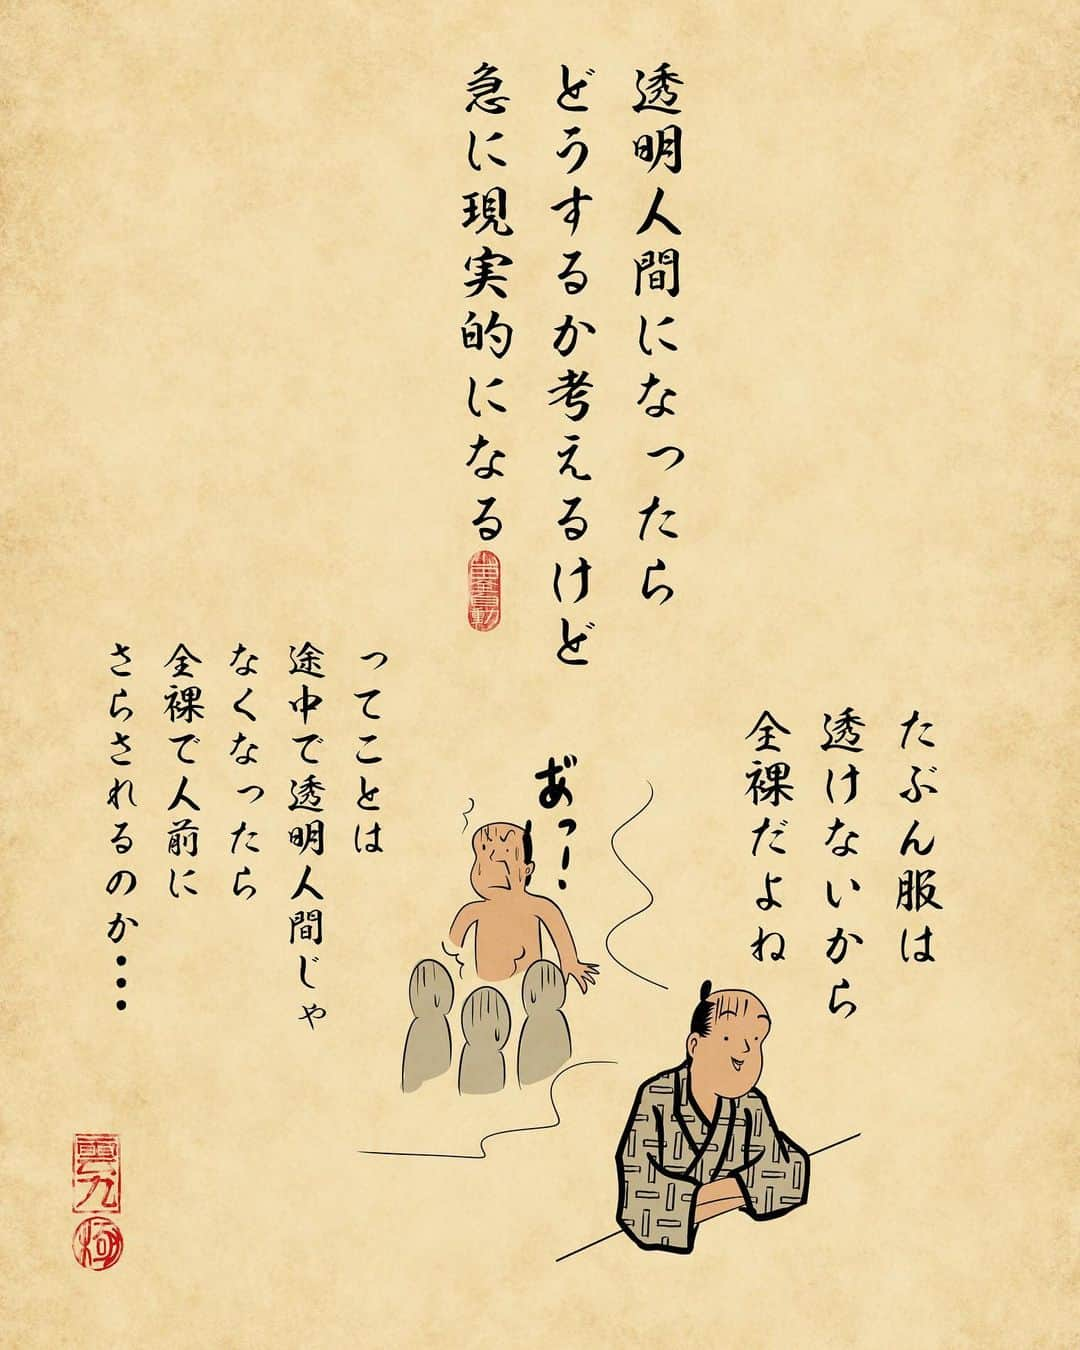 透明人間になったら
どうするか考えるけど
急に現実的になる
たぶん服は
透けないから
全裸だよね
あっ！
ってことは
途中で透明人間じゃ
なくなったら
全裸で人前に
さらされるのか・・・
雲九
極